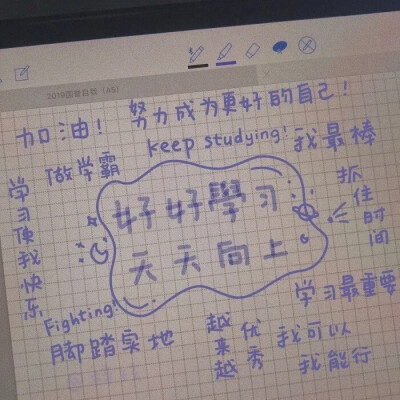 加油!
努力成为更好的自己!
keep studying!
我最棒
做学霸
学习使我快乐
好好學习
天天向上
抓住时间
学习最重要
Fighting!
脚踏实地
越来越优秀
我可以
我能行